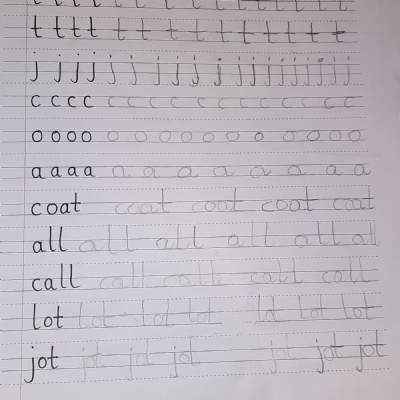 t t t t t t t t t t t t t t
j j j j j j j j j j j j j j j j j j
c c c c c c c c c c c c c c c c
o o o o o o o o o o o o o o o
a a a a a a a a a a a
coat coat coat coat coat
all all all all all all
call call call call call
lot lot lot lot lot lot lot
jot jot jot jot jot jot jot